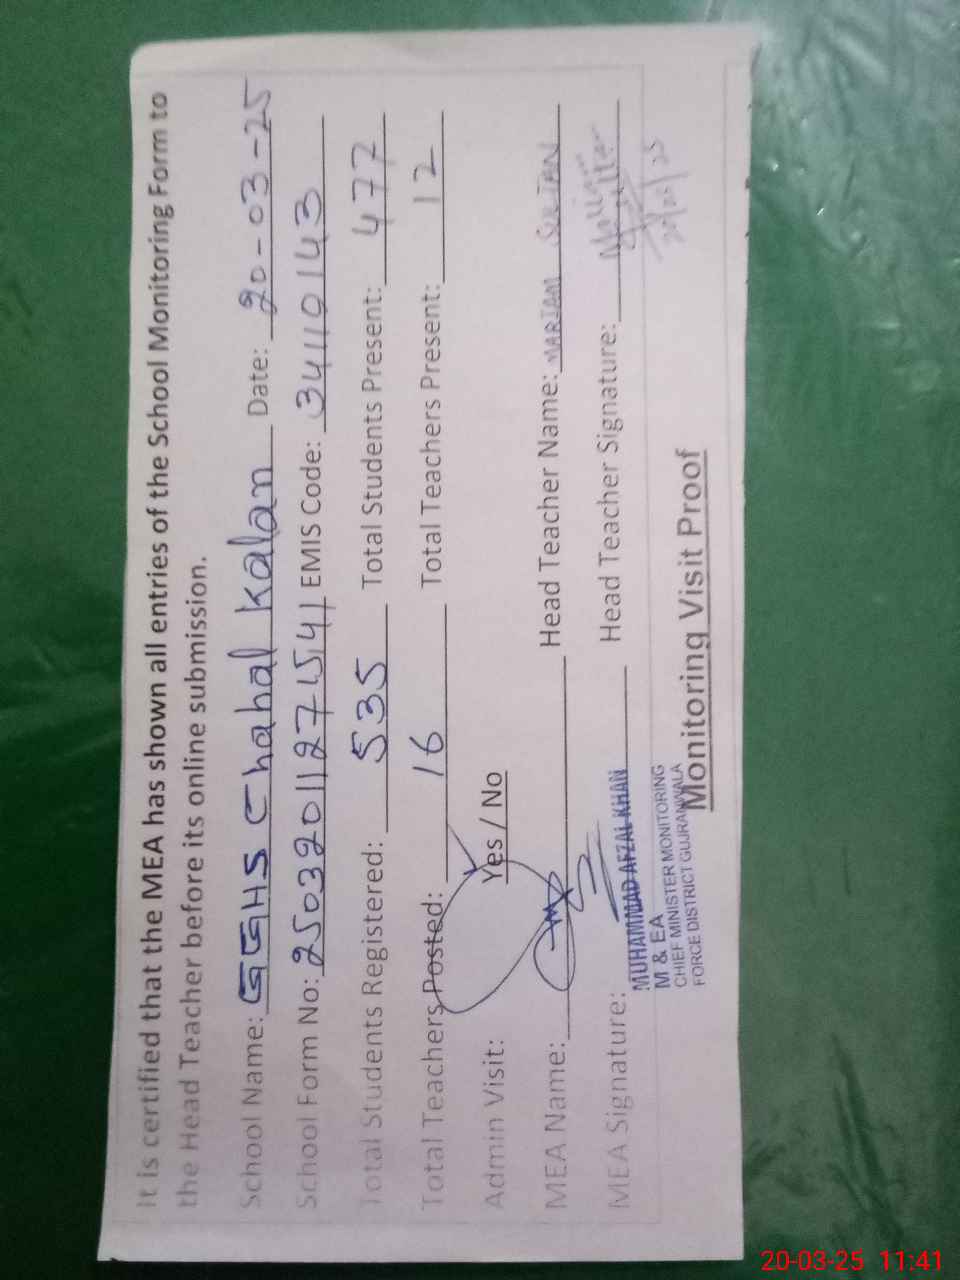 It is certified that the MEA has shown all entries of the School Monitoring Form to
the Head Teacher before its online submission.
School Name: GGHS Chahal Kalan Date: 20-03-25
School Form No: 25032011271541 EMIS Code: 34110143
Total Students Registered: 535 Total Students Present: 477
Total Teachers Posted: 16 Total Teachers Present: 12
Admin Visit: Yes / No
MEA Name: Head Teacher Name: MARIAM SULTAN
MEA Signature: Head Teacher Signature:
MUHAMMAD AFZAL KHAN
M & EA
CHIEF MINISTER MONITORING
FORCE DISTRICT GUJRANWALA
Monitoring Visit Proof
20-03-25 11:41